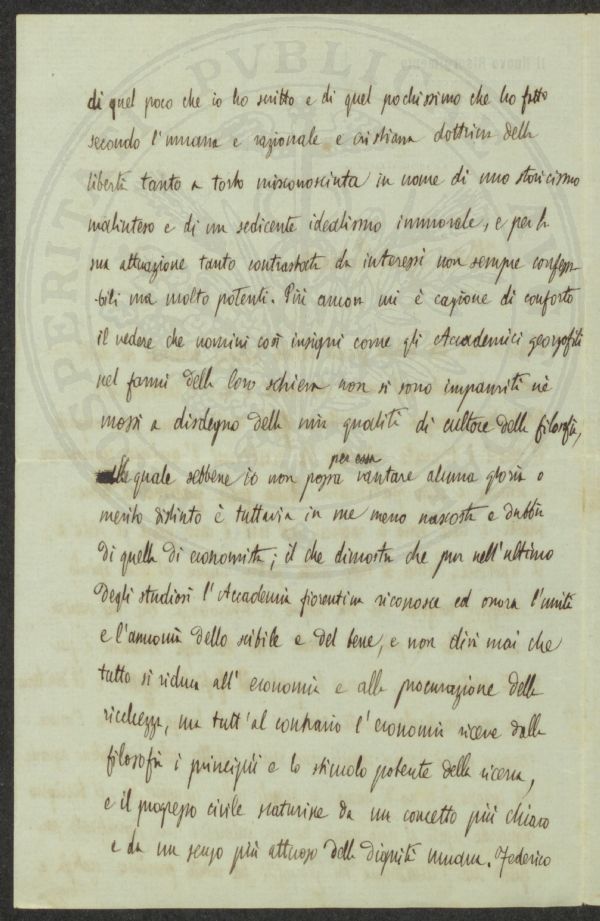 di quel poco che io ho scritto e di quel pochissimo che ho fatto
secondo l'umana e razionale e cristiana dottrina della
libertà tanto a torto misconosciuta in nome di uno storicismo
malinteso e di un sedicente idealismo immorale, e per la
sua attuazione tanto contrastata da interessi non sempre confessa-
-bili ma molto potenti. Più ancora mi è cagione di conforto
il vedere che uomini così insigni come gli Accademici georgofili
nel farmi della loro schiera non si sono impauriti nè
mossi a disdegno della mia qualità di cultore della filosofia,
la quale sebbene io non possa per essa vantare alcuna gloria o
merito distinto è tuttavia in me meno nascosta e dubbia
di quella di economista; il che dimostra che pur nell'ultimo
degli studiosi l'Accademia fiorentina riconosce ed onora l'unità
e l'armonia dello scibile e del bene, e non dirà mai che
tutto si riduca all'economia e alla procurazione della
ricchezza, ma tutt'al contrario l'economia riceve dalla
filosofia i principii e lo stimolo potente della ricerca,
e il progresso civile scaturisce da un concetto più chiaro
e da un senso più attuoso della dignità umana. Federico